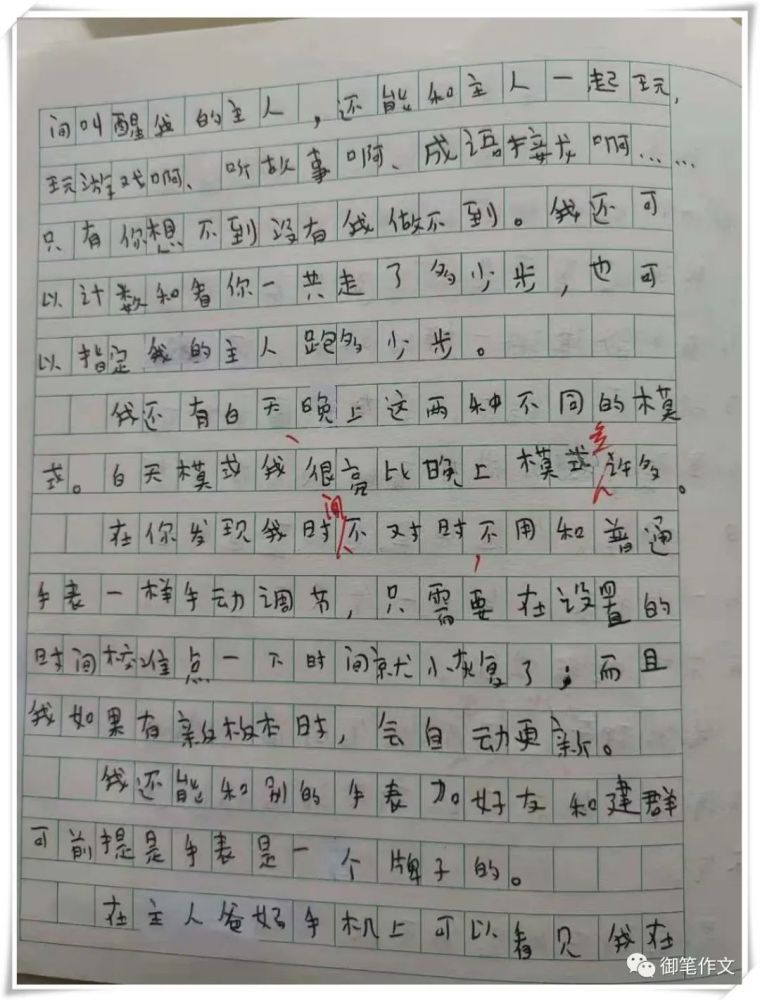 间叫醒我的主人，还能和主人一起玩，
玩游戏啊、听故事啊、成语接龙啊……
只有你想不到没有我做不到。我还可
以计数和看你一共走了多少步，也可
以指定我的主人跑多少步。
我还有白天晚上这两种不同的模
式。白天模式我很亮比晚上模式亮许多。
在你发现我时间不对时，不用和普通
手表一样手动调节，只需要在设置的
时间校准点一下时间就恢复了；而且
我如果有新版本时，会自动更新。
我还能和别的手表加好友和建群
可前提是手表是一个牌子的。
在主人爸妈手机上可以看见我在
御笔作文